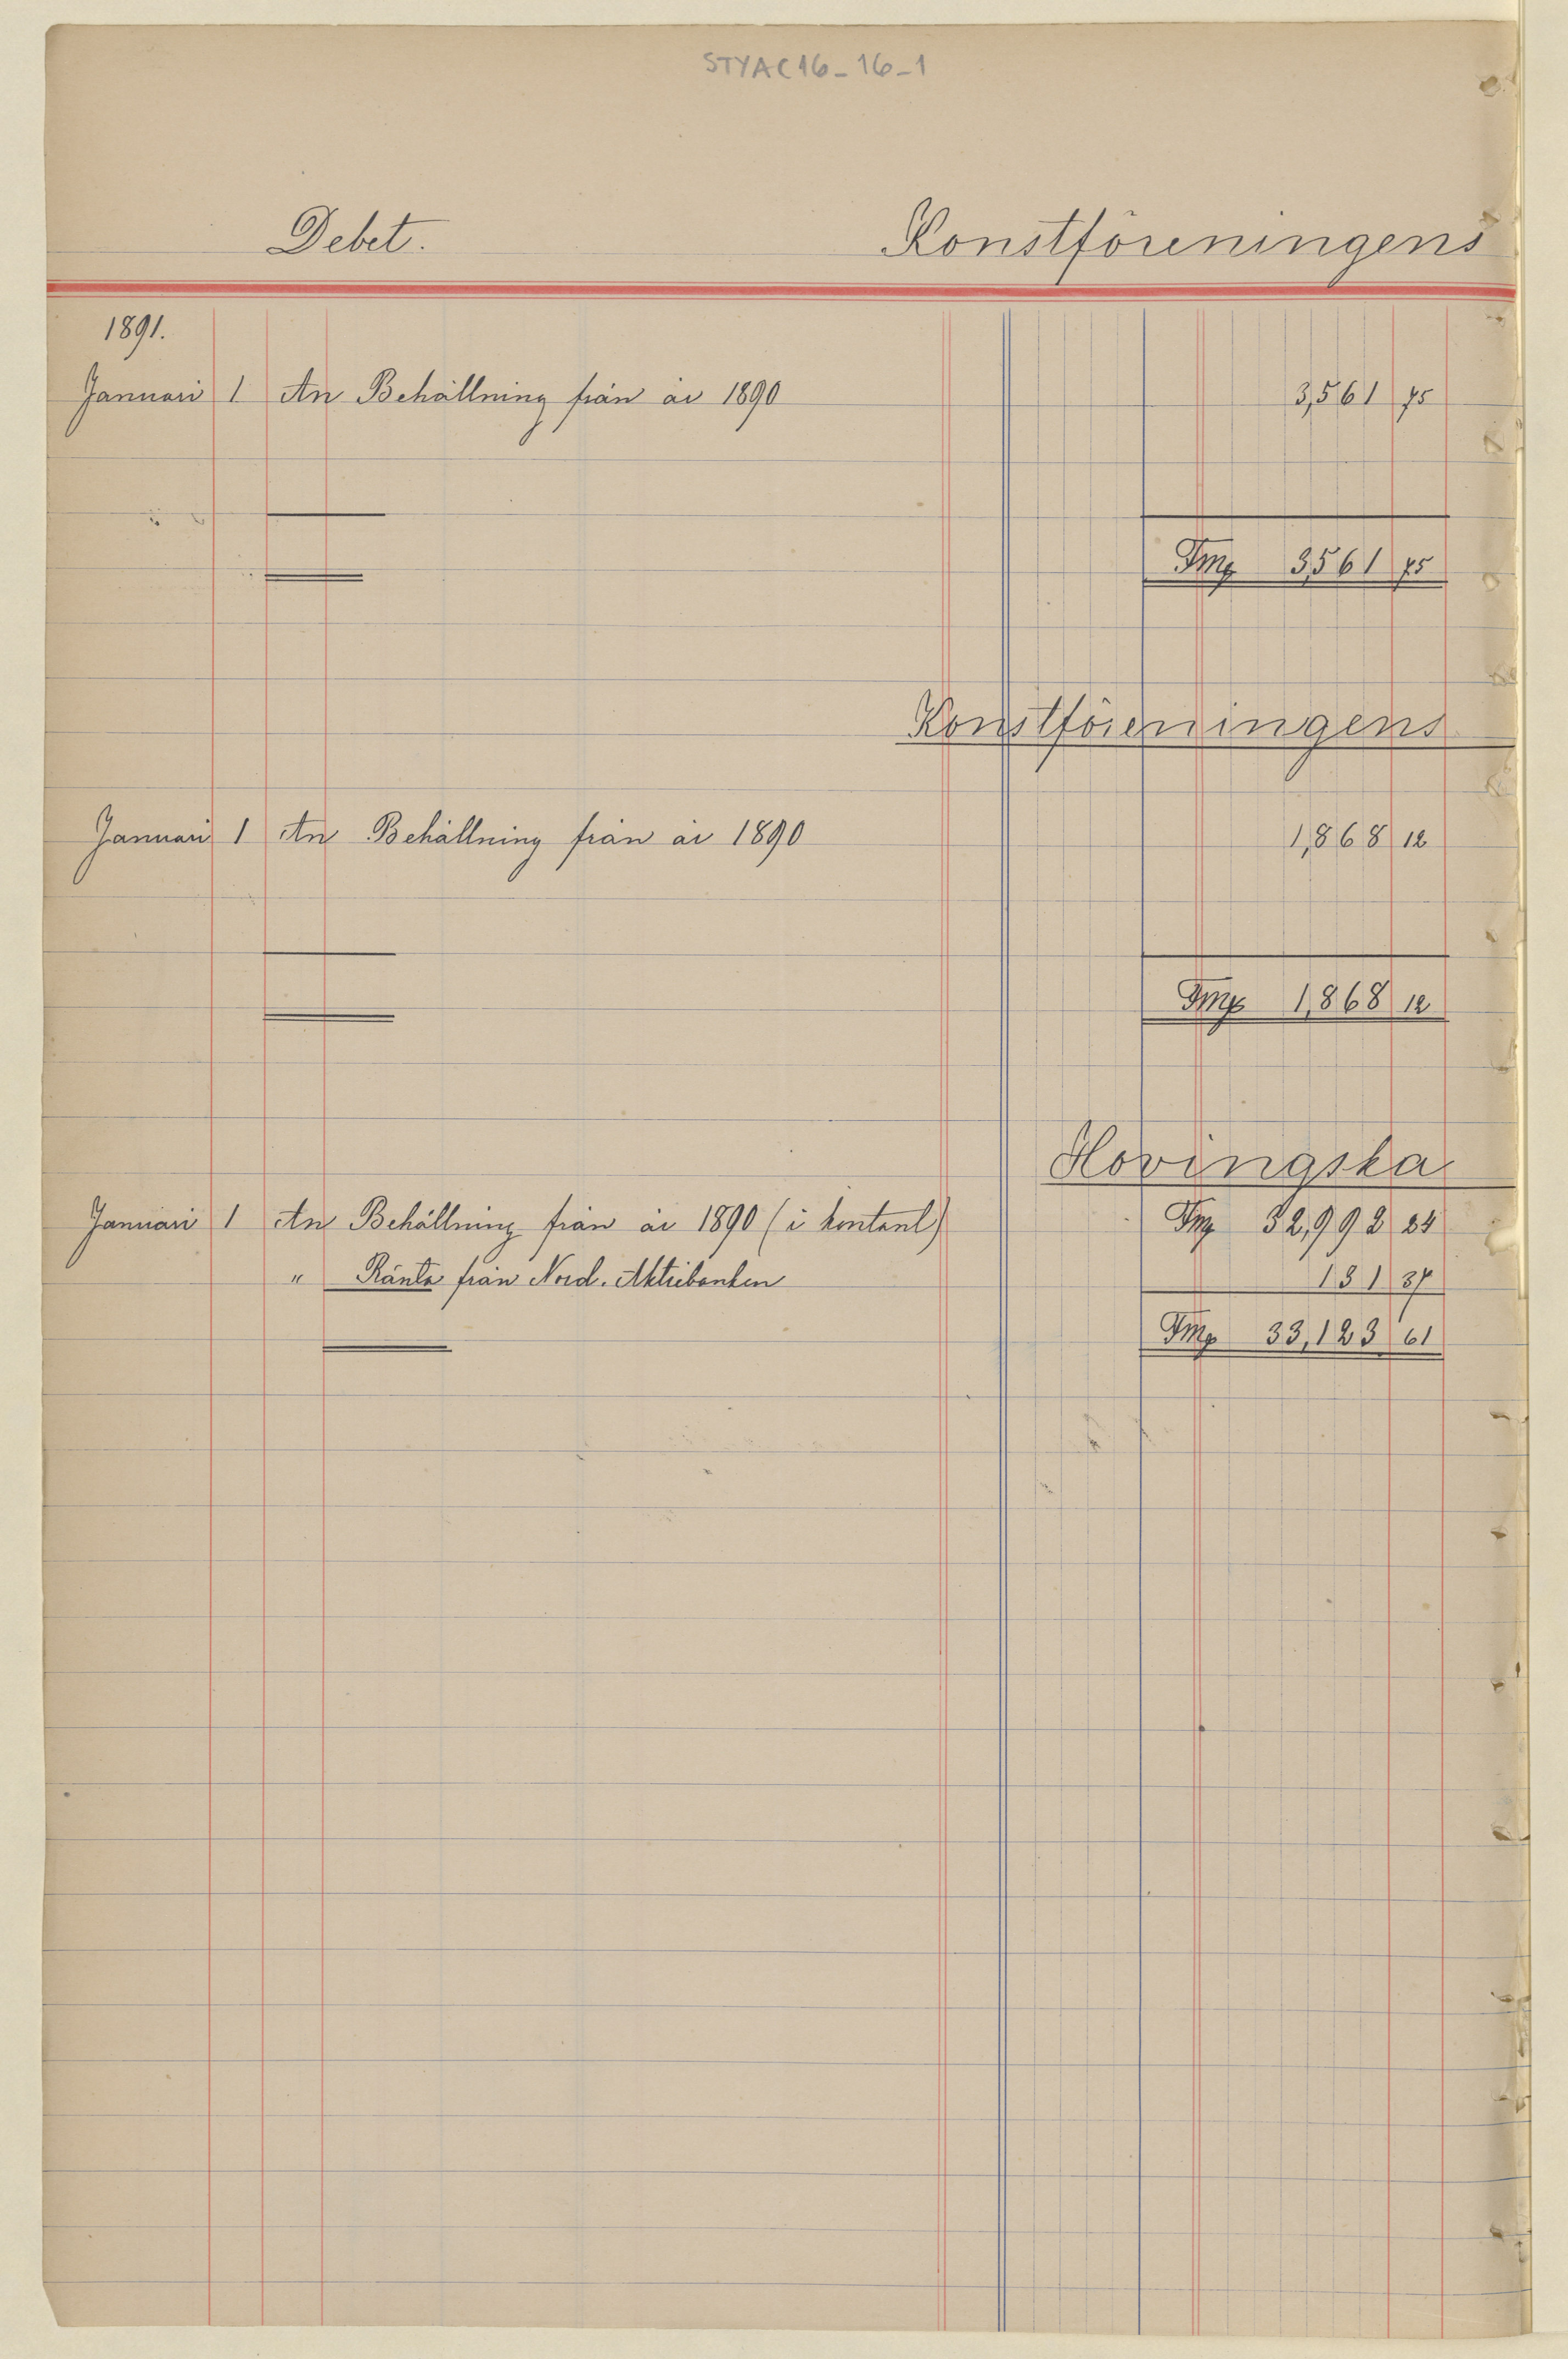 STYAC16-16-1
Debet. Konstföreningens
1891.
Januari 1 An Behållning från år 1890 3,561 75
Fmk 3,561 75
Konstföreningens
Januari 1 An Behållning från år 1890 1,868 12
Fmk 1,868 12
Hovingska
Januari 1 An Behållning från år 1890 (i kontant) Fmk 32,992 24
" Ränta från Nord. Aktiebanken 131 37
Fmk 33,123 61